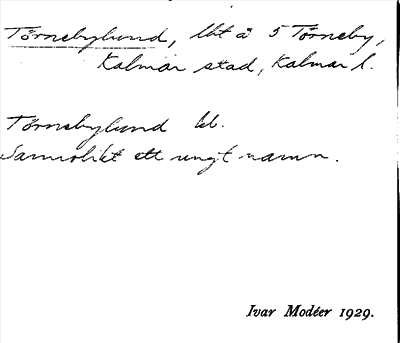 Törnebylund, lht å 5 Törneby,
Kalmar stad, Kalmar l.
Törnebylund kl.
Sannolikt ett ungt namn.
Ivar Modéer 1929.